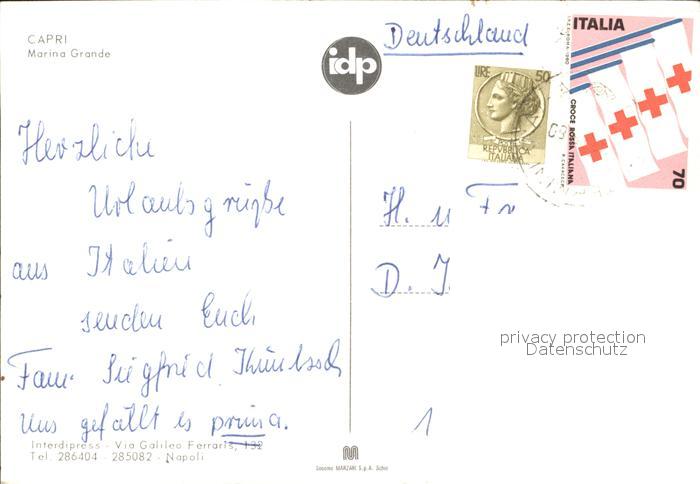 CAPRI
Marina Grande
Herzliche
Urlaubsgrüße
aus Italien
senden Euch
Fam. Siegfried
Uns gefällt es prima.
Interdipress - Via Galileo Ferraris, 132
Tel. 286404 - 285082 - Napoli
idp
Deutschland
LIRE 50
REPVBBLICA
ITALIANA
ITALIA
CROCE ROSSA ITALIANA
70
H. u Fr
D. J
privacy protection
Datenschutz
1
Locorno MARZARI S.p.A. Schio